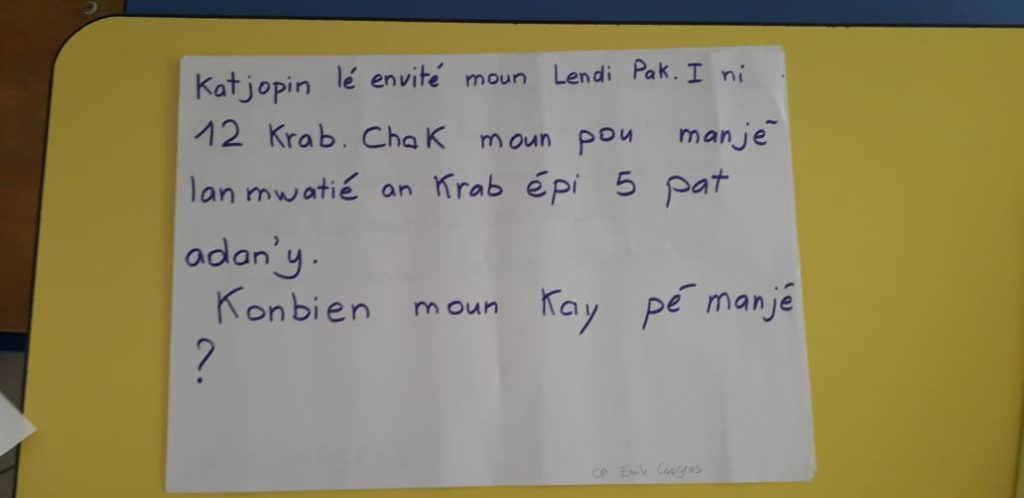 Katjopin lé envité moun Lendi Pak. I ni
12 Krab. Chak moun pou manjé
lanmwatié an Krab épi 5 pat
adan'y.
Konbien moun Kay pé manjé
?
CP Emile Capgras